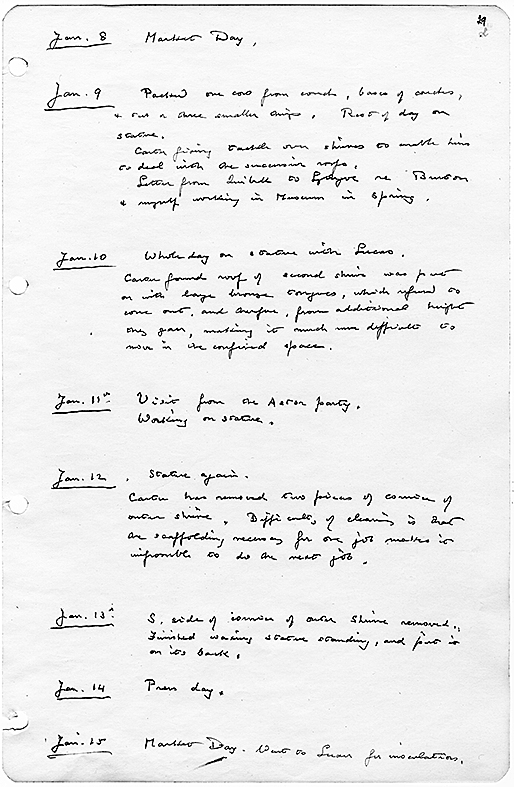 29
Jan. 8 Market Day.
Jan. 9 Packed one cow from couch, bases of couches,
& two or three smaller things. Rest of day on
statue.
Carter fixing tackle over shrines to enable him
to deal with the successive roofs.
Letter from to re Burton
& myself working in Museum in Spring.
Jan. 10 Whole day on statue with Lucas.
Carter found roof of second shrine was put
on with large bronze tongues, which refused to
come out, and therefore, from additional height
they gave, making it much more difficult to
move in the confined space.
Jan. 11th Visit from the Astor party.
Working on statue.
Jan. 12. Statue again.
Carter has removed two pieces of cornice of
outer shrine. Difficulty of clearing is that
the scaffolding necessary for one job makes it
impossible to do the next job.
Jan. 13th S. side of cornice of outer Shrine removed.
Finished waxing statue standing, and put it
on its back.
Jan. 14 Press day.
Jan. 15 Market Day. Went to Luxor for inoculation.